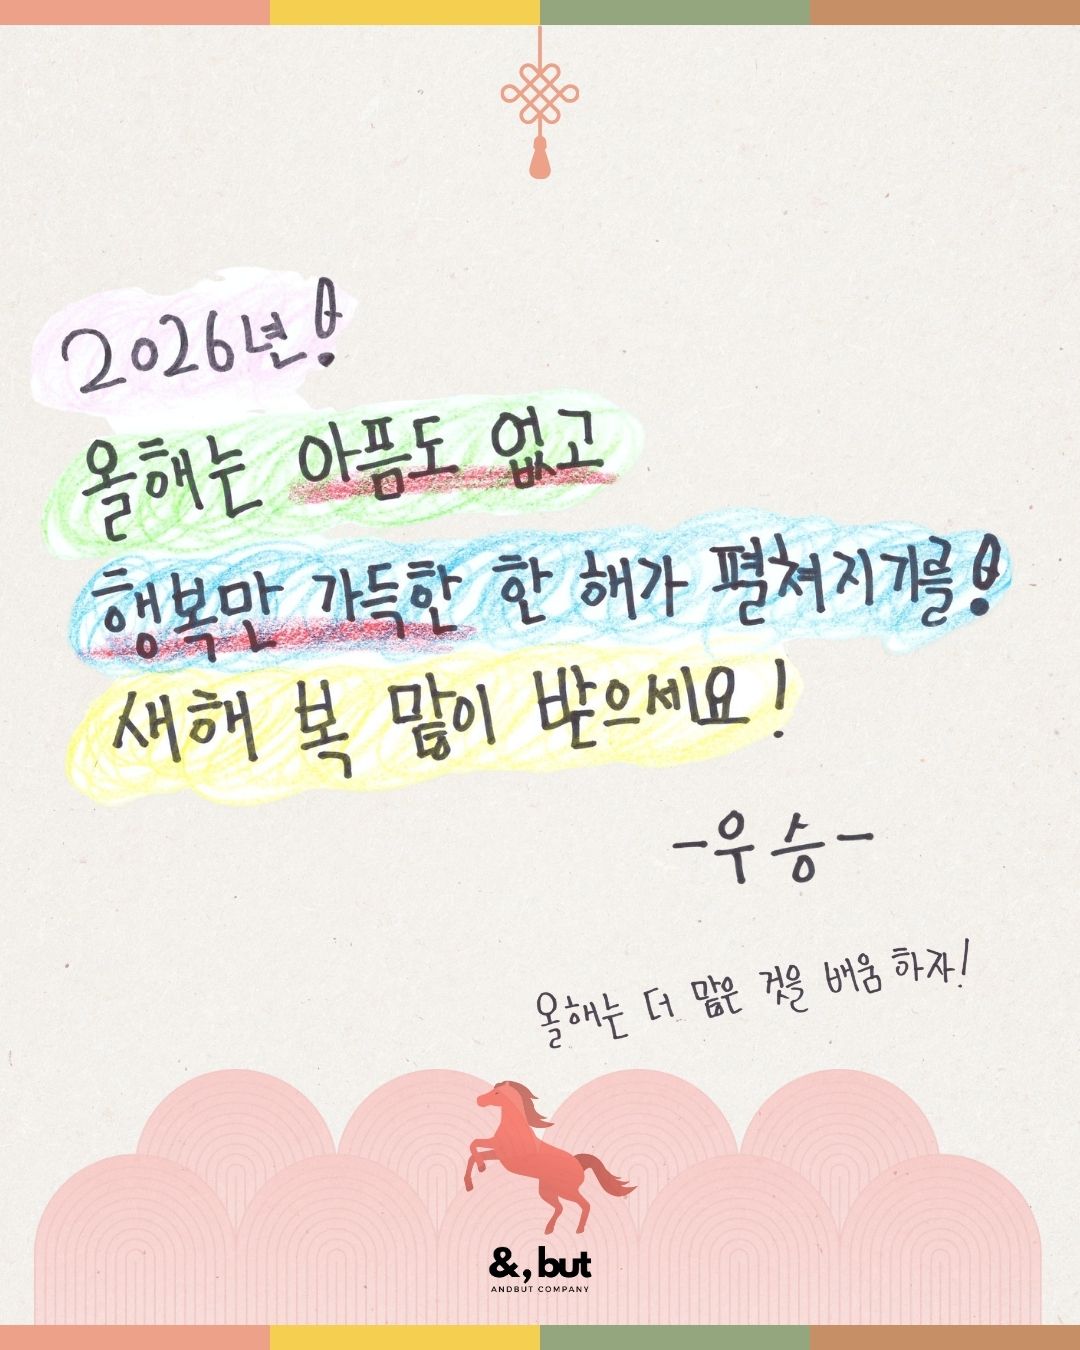 2026년!
올해는 아픔도 없고
행복만 가득한 한 해가 펼쳐지기를!
새해 복 많이 받으세요!
-우승-
올해는 더 많은 것을 배움 하자!
&, but
ANDBUT COMPANY